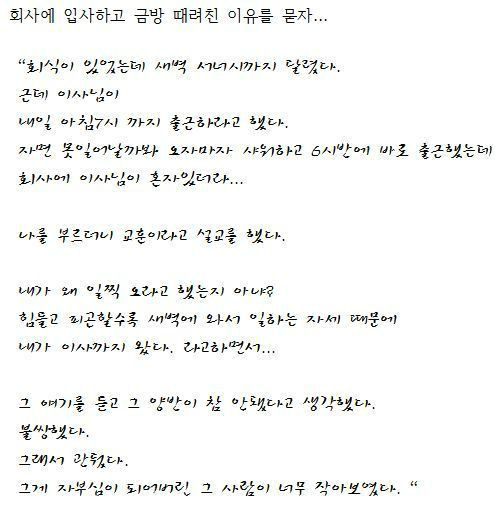 회사에 입사하고 금방 때려친 이유를 묻자...
“회식이 있었는데 새벽 서너시까지 달렸다.
근데 이사님이
내일 아침7시 까지 출근하라고 했다.
자면 못일어날까봐 오자마자 샤워하고 6시반에 바로 출근했는데
회사에 이사님이 혼자있더라...
나를 부르더니 교훈이라고 설교를 했다.
내가 왜 일찍 오라고 했는지 아냐?
힘들고 피곤할수록 새벽에 와서 일하는 자세 때문에
내가 이사까지 왔다. 라고하면서...
그 얘기를 듣고 그 양반이 참 안됐다고 생각했다.
불쌍했다.
그래서 관뒀다.
그게 자부심이 되어버린 그 사람이 너무 작아보였다. “